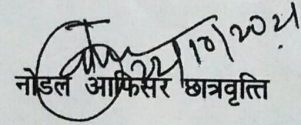 22/10/2021
नोडल आफिसर छात्रवृत्ति